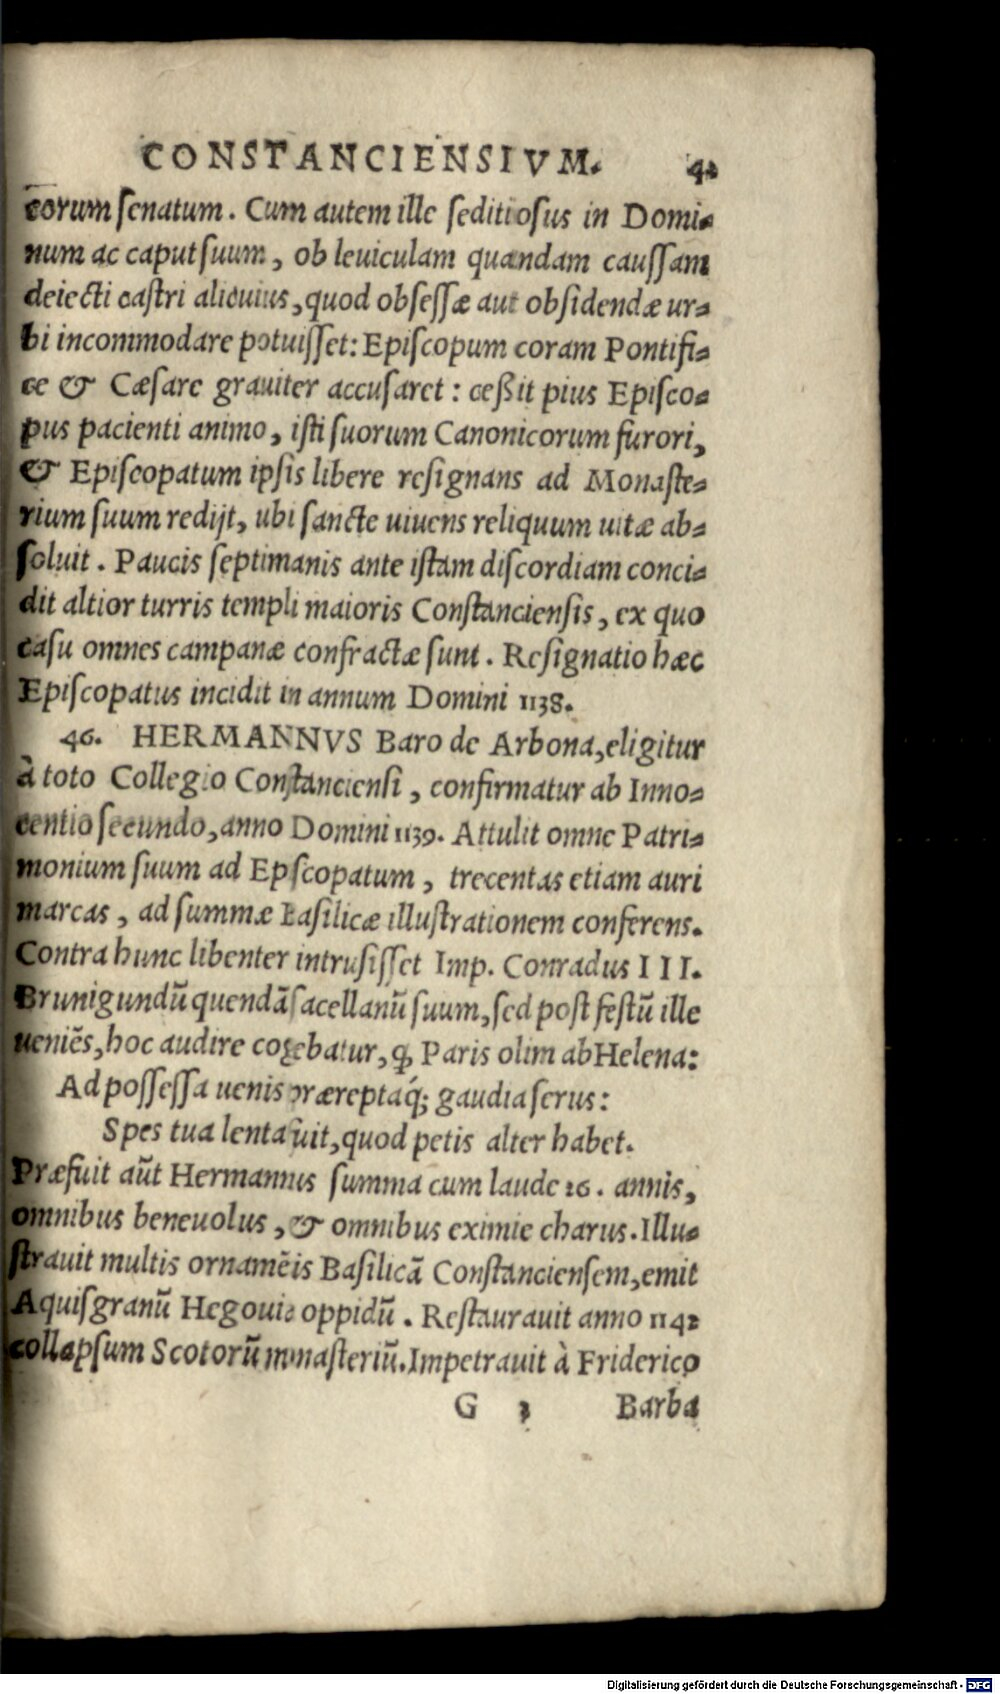 CONSTANCIENSIVM. 42
corum senatum. Cum autem ille seditiosus in Domi-
num ac caput suum, ob leuiculam quandam caussam
deiecti castri alicuius, quod obsessæ aut obsidendæ ur-
bi incommodare potuisset: Episcopum coram Pontifi-
ce & Cæsare grauiter accusaret: ceßit pius Episco-
pus pacienti animo, isti suorum Canonicorum furori,
& Episcopatum ipsis libere resignans ad Monaste-
rium suum redijt, ubi sancte uiuens reliquum uitæ ab-
soluit. Paucis septimanis ante istam discordiam conci-
dit altior turris templi maioris Constanciensis, ex quo
casu omnes campanæ confractæ sunt. Resignatio hæc
Episcopatus incidit in annum Domini 1138.
46. HERMANNVS Baro de Arbona, eligitur
à toto Collegio Constanciensi, confirmatur ab Inno-
centio secundo, anno Domini 1139. Attulit omne Patri-
monium suum ad Epscopatum, trecentas etiam auri
marcas, ad summæ Basilicæ illustrationem conferens.
Contra hunc libenter intrusisset Imp. Conradus III.
Brunigundũ quendã sacellanũ suum, sed post festũ ille
ueniẽs, hoc audire cogebatur, ꝙ Paris olim ab Helena:
Ad possessa uenis præreptaq́; gaudia serus:
Spes tua lenta fuit, quod petis alter habet.
Præfuit aũt Hermannus summa cum laude 26. annis,
omnibus beneuolus, & omnibus eximie charus. Illu-
strauit multis ornamẽis Basilicã Constanciensem, emit
Aquisgranũ Hegouie oppidũ. Restaurauit anno 1142
collapsum Scotorũ monasteriũ. Impetrauit à Friderico
G 2 Barba
Digitalisierung gefördert durch die Deutsche Forschungsgemeinschaft - DFG